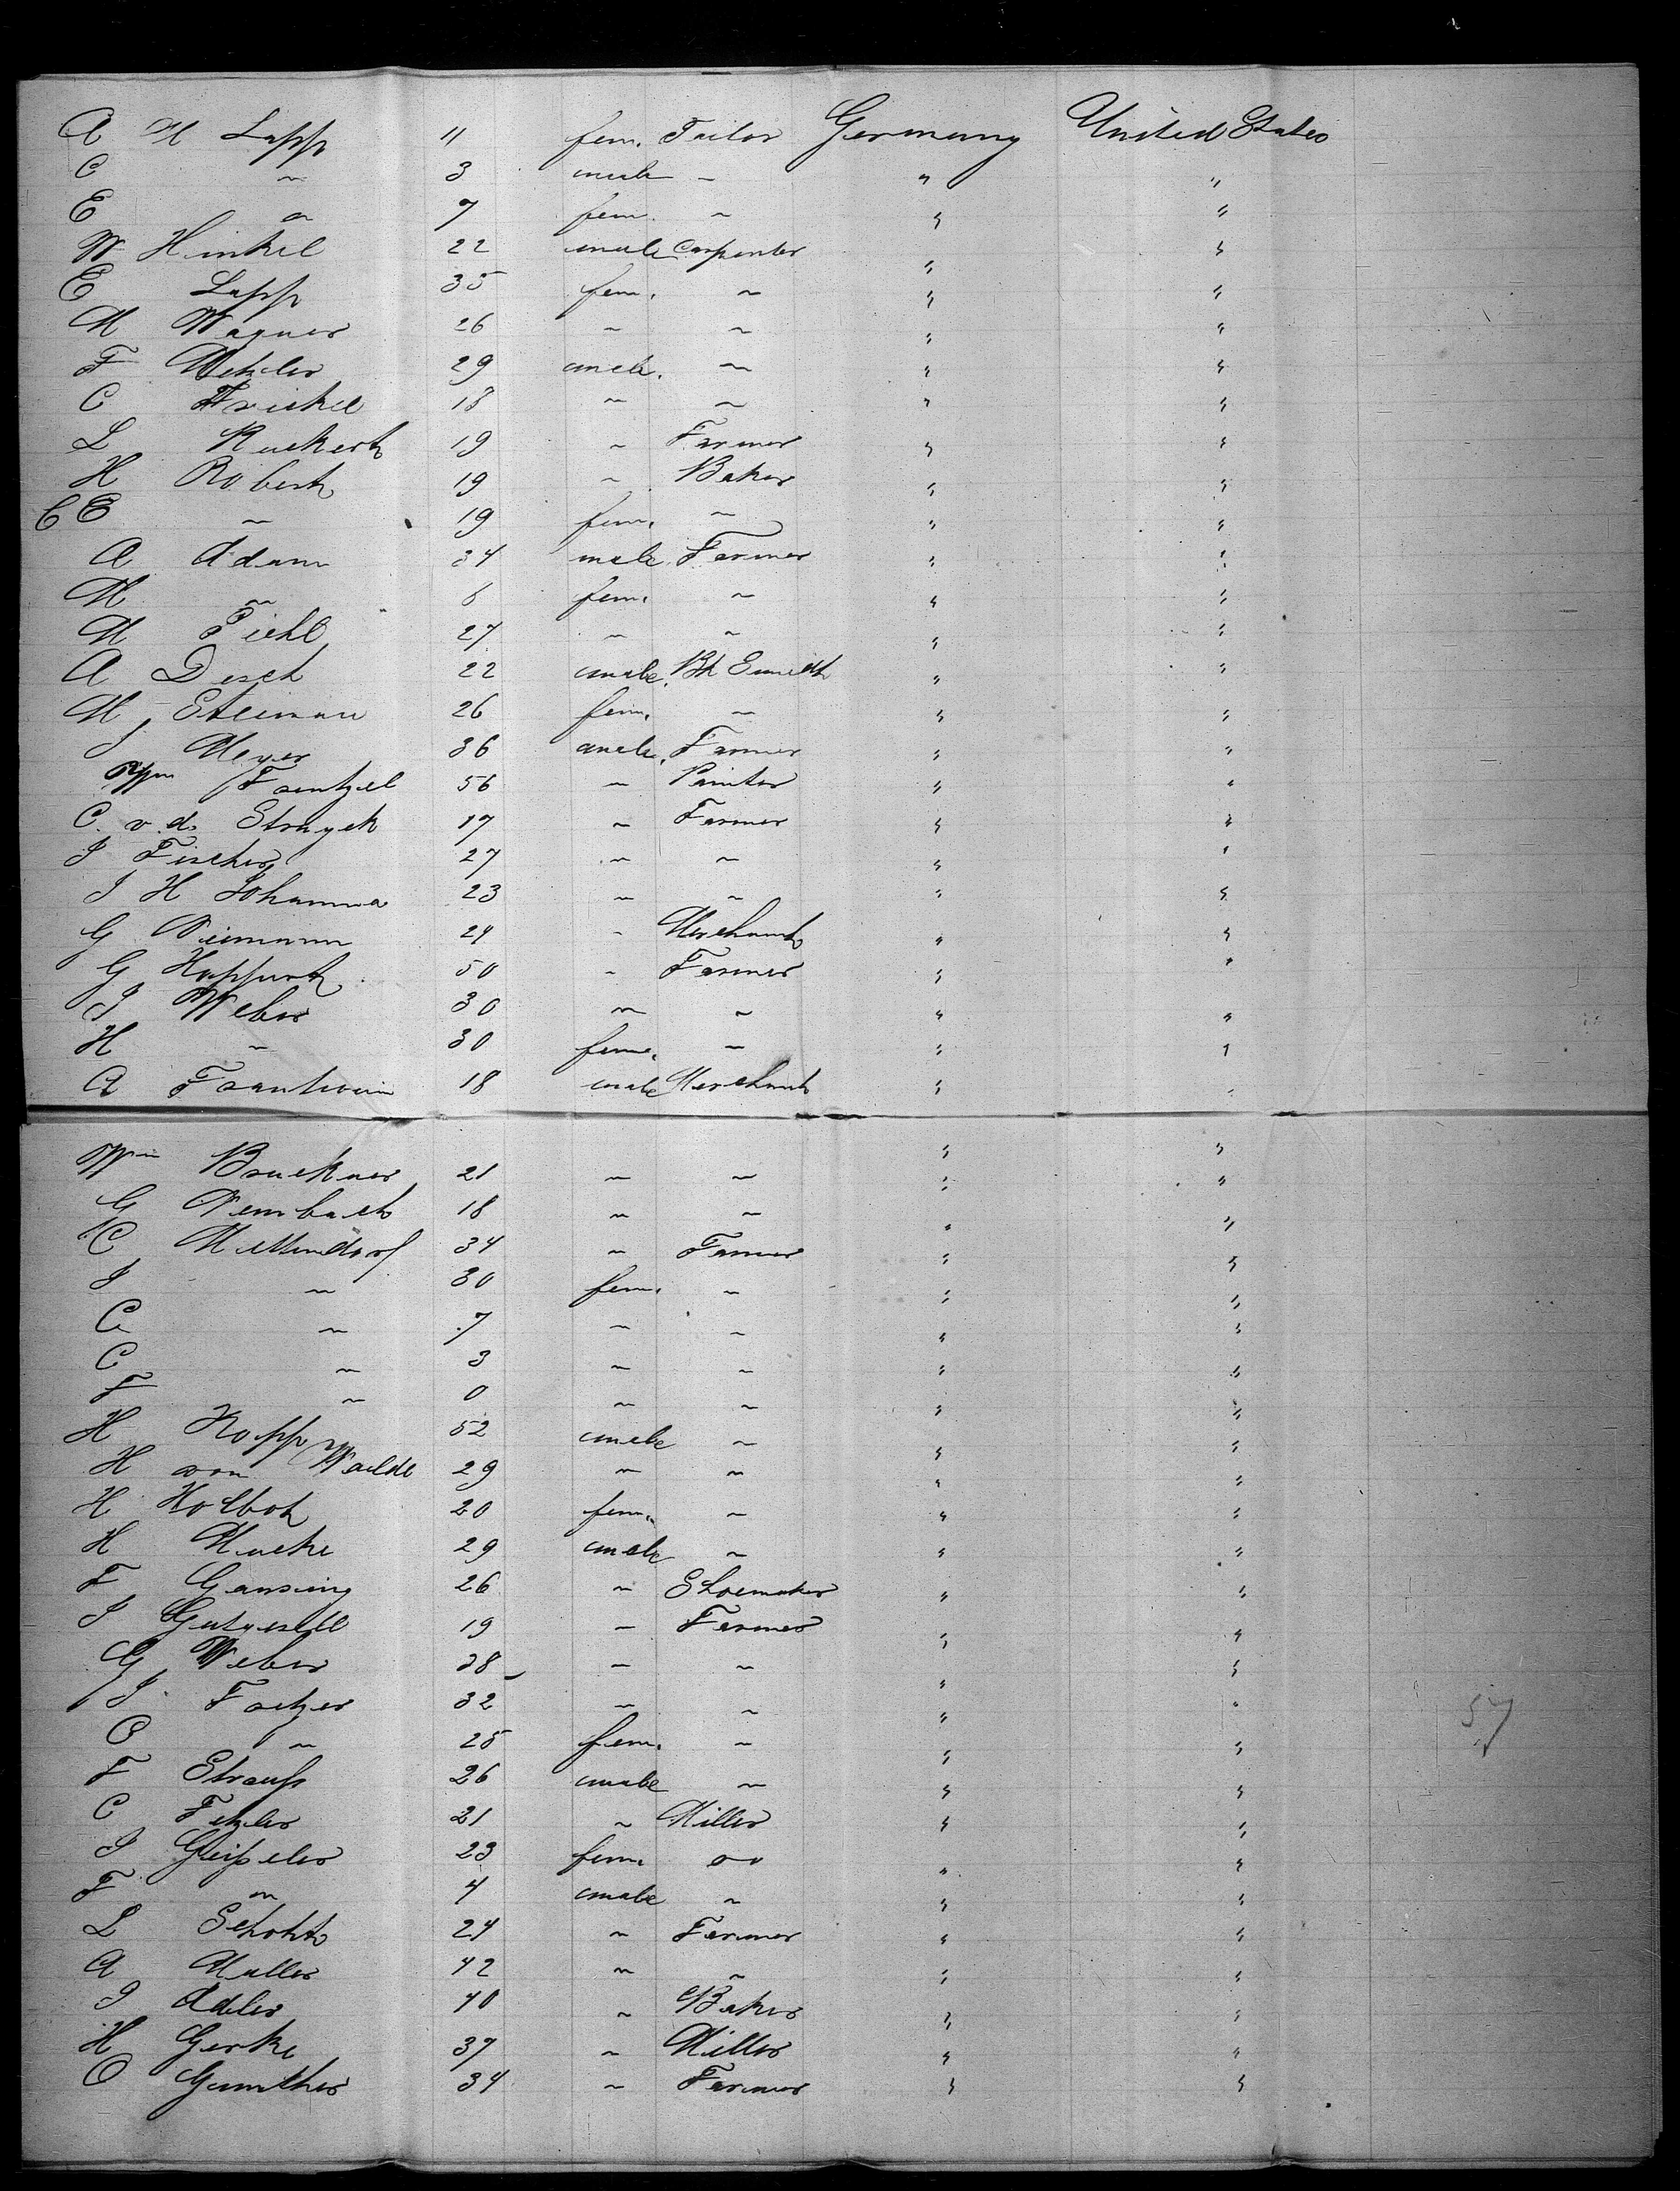 A M Lapp 11 fem. Tailor Germany United States
C " 3 male " " "
E " 7 fem. " " "
W Hinkel 22 male Carpenter " "
E Lapp 35 fem. " " "
M Wagner 26 " " " "
F Metzler 29 male. " " "
C Frickel 18 " " " "
L Ruckert 19 " Farmer " "
H Robert 19 " Baker " "
C E " 19 fem. " " "
A Adam 34 male Farmer " "
M " 6 fem. " " "
M Piehl 27 " " " "
A Desch 22 male. Bk Smidt " "
M Steiman 26 fem. " " "
J Meyer 36 male. Farmer " "
Wm Frentzel 56 " Painter " "
C. v. d. Struyck 17 " Farmer " "
J Fischer 27 " " " "
J H Johanna 23 " " " "
G Niemann 24 " Merchant " "
G Huppert 50 " Farmer " "
J Weber 30 " " " "
H " 30 fem. " " "
A Trautwein 18 male Merchant " "
Wm Bruckner 21 " " " "
G Nembach 18 " " " "
C Mettendorf 34 " Farmer " "
J " 30 fem. " " "
C " 7 " " " "
C " 3 " " " "
F " 0 " " " "
H Kopp 52 male " " "
H von Walde 29 " " " "
H Holbot 20 fem. " " "
H Mucke 29 male " " "
F Gansing 26 " Shoemaker " "
J Gutgesell 19 " Farmer " "
G Weber 38 " " " "
J Fretzer 32 " " " "
C " 25 fem. " " "
F Strauß 26 male " " "
C Fetzler 21 " Miller " "
J Geißeler 23 fem. " " "
F " 4 male " " "
L Schohk 24 " Farmer " "
A Muller 42 " " " "
J Adler 40 " Baker " "
H Gerke 37 " Miller " "
O Gunther 34 " Farmer " "
57